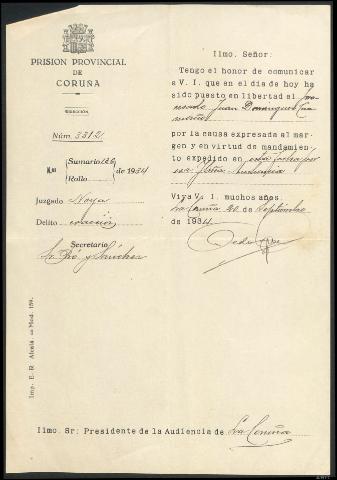 PRISION PROVINCIAL
DE
CORUÑA
DIRECCIÓN
Núm. 3312
Núm Sumario 126 de 1934
Rollo
Juzgado Noya
Delito evasión
Secretario
Sr. Pró y Sánchez
Ilmo. Señor:
Tengo el honor de comunicar
a V. I. que en el dia de hoy ha
sido puesto en libertad el pro-
cesado Juan Dominguez Caa-
maño
por la causa expresada al mar-
gen y en virtud de mandamien-
to expedido en esta fecha por
esa Iltma Audiencia
Viva V. I. muchos años.
La Coruña 20 de Septiembre
de 1934
Imp. E. R. Alcalá Mod. 159.
Ilmo. Sr: Presidente de la Audiencia de La Coruña